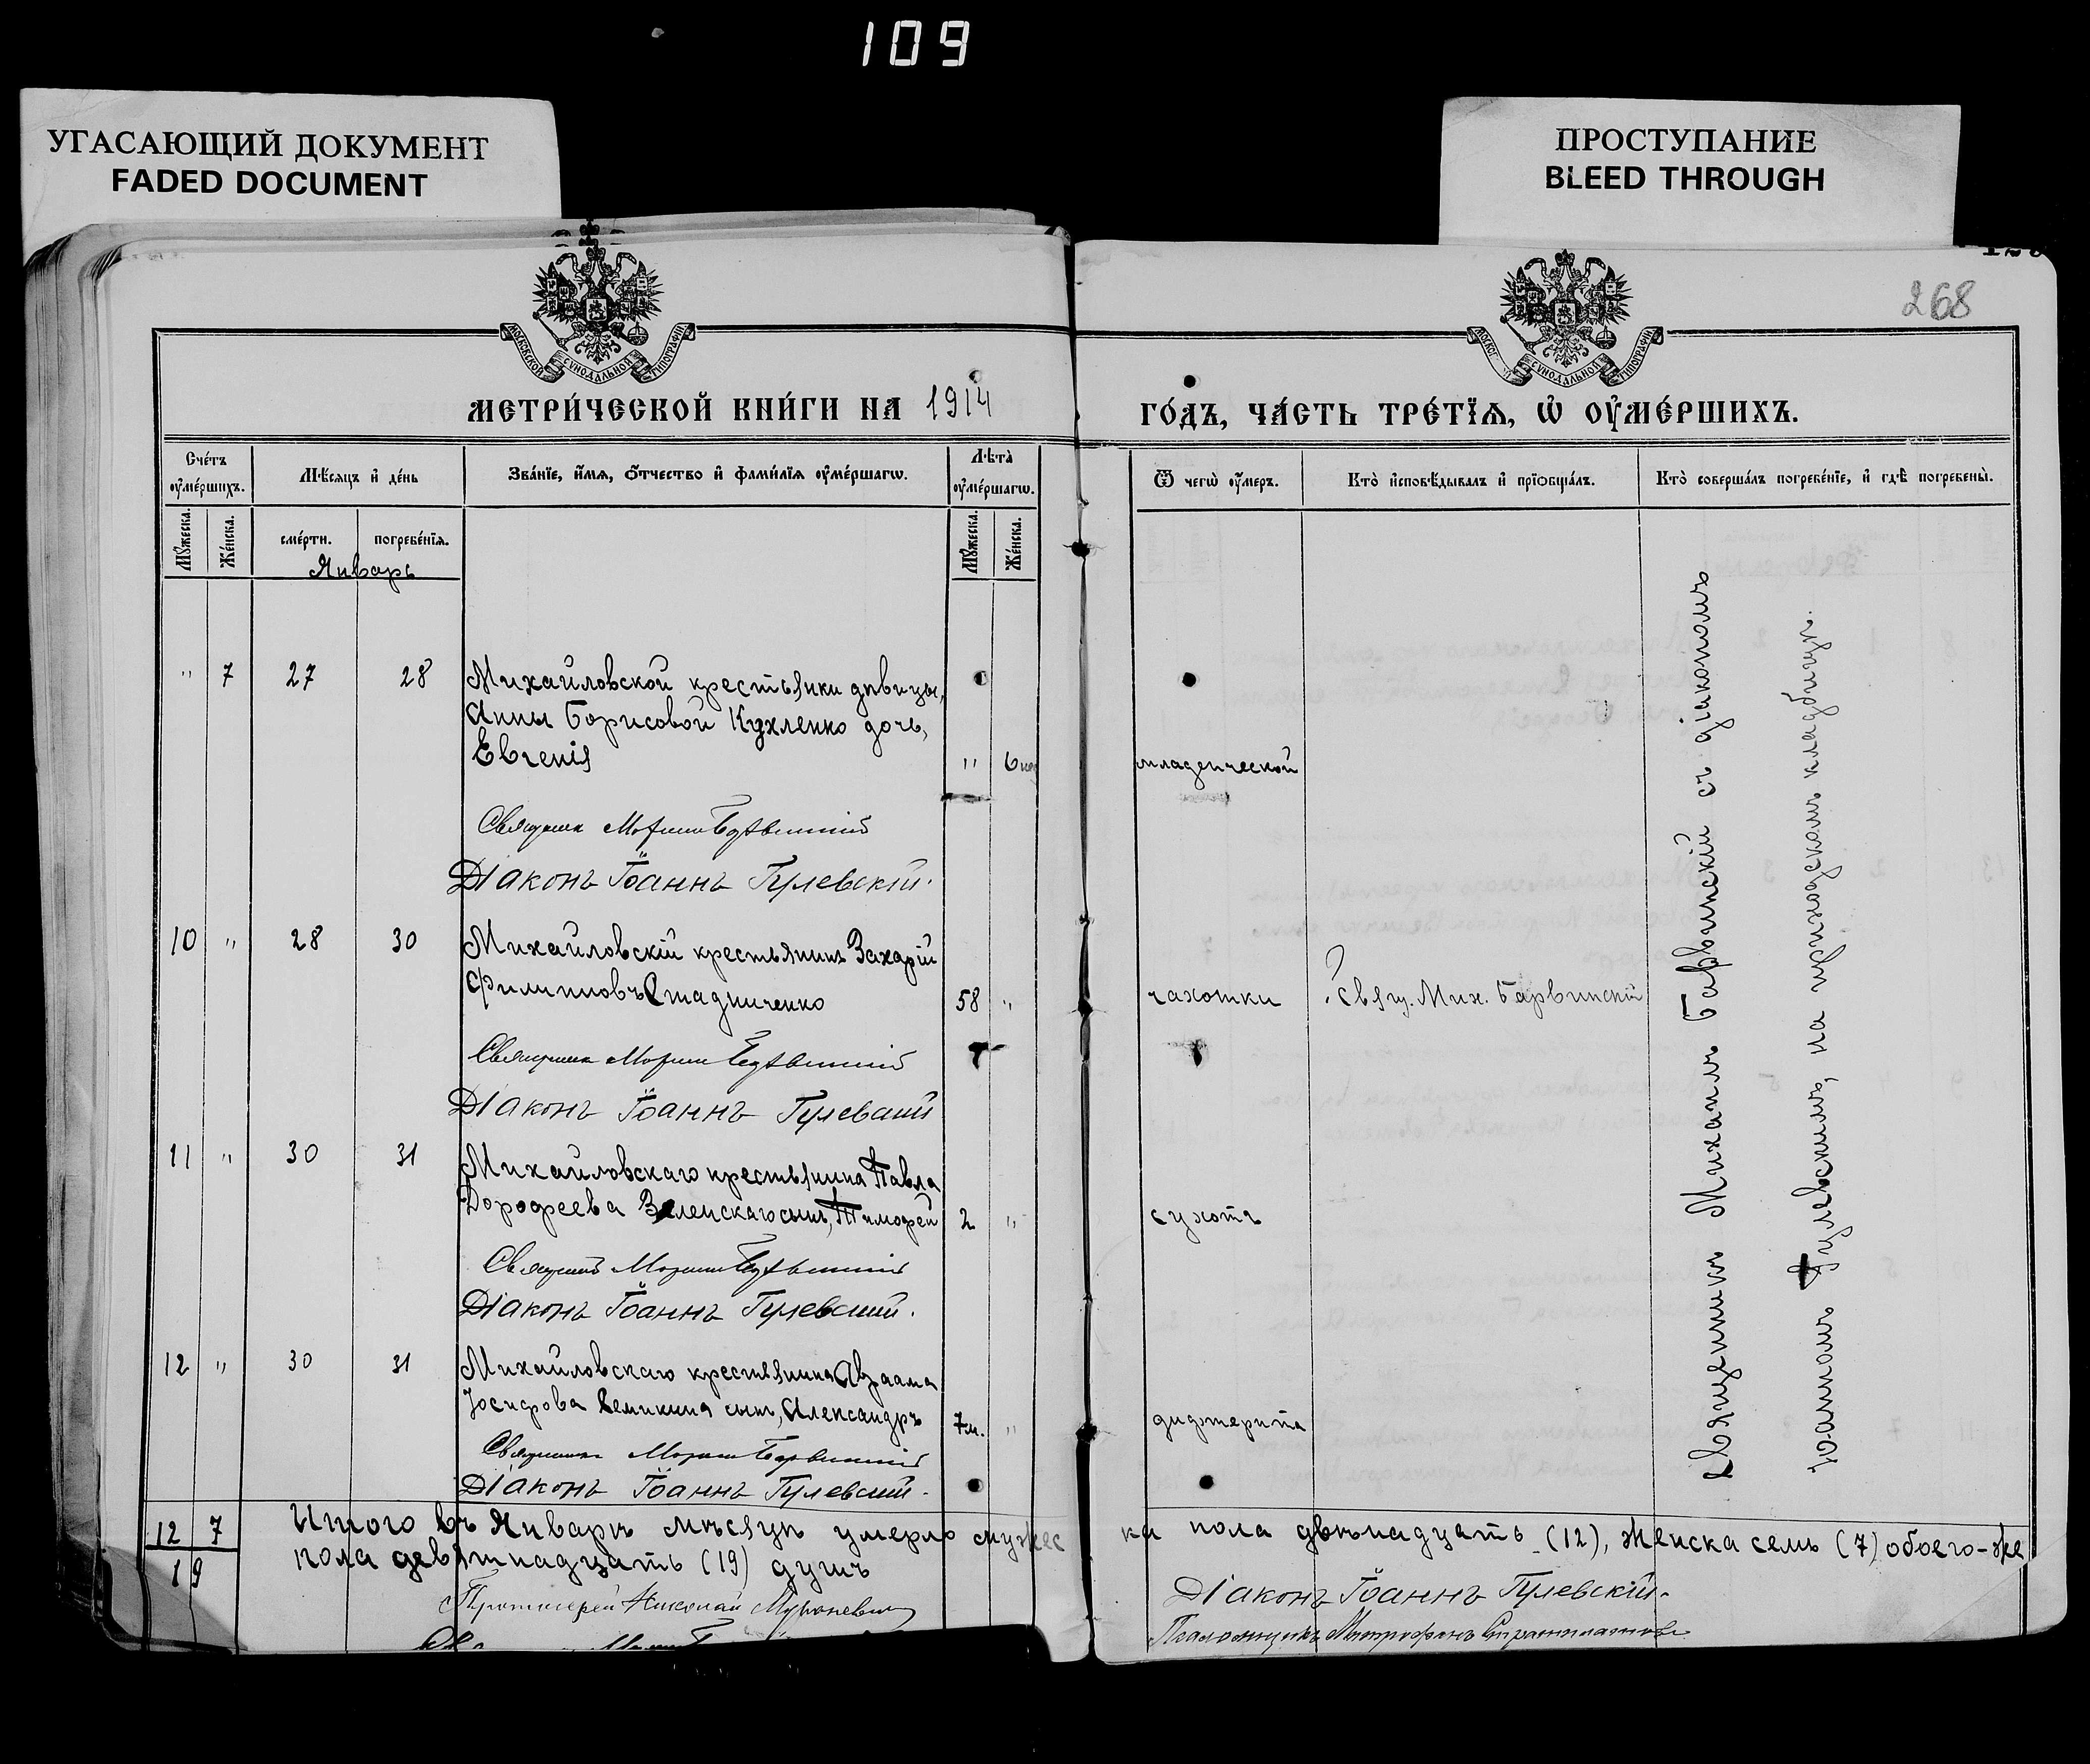 109
УГАСАЮЩИЙ ДОКУМЕНТ
FADED DOCUMENT
ПРОСТУПАНИЕ
BLEED THROUGH
268
МОСКОВСКОЙ СУНОДАЛЬНОЙ ТИПОГРАФІИ
СУНОДАЛЬНОЙ ТИПОГРАФІИ
МЕТРИ́ЧЕСКОЙ КНИ́ГИ НА 1914
ГО́ДЪ, ЧА́СТЬ ТРЕ́ТЇѦ, Ѡ҆ ОУ҆МЕ́РШИХЪ.
Счетъ оумершихъ.
Мѣсяцъ и день
Званїе, имя, отчество и фамилїя оумершагѡ.
Лѣта оумершагѡ.
Ѿ чегѡ оумеръ.
Кто исповѣдывалъ и прїобщалъ.
Кто совершалъ погребенїе, и гдѣ погребены.
Мужеска. Женска.
смерти. погребенїя.
Мужеска. Женска.
Январь
" 7 27 28 Михайловской крестьянки дѣвицы,
Анны Борисовой Кухленко дочь,
Евгенія " 6 младенческой
Священникъ Михаилъ Барвинскій
Діаконъ Іоаннъ Гулевскій.
10 " 28 30 Михайловскій крестьянинъ Захарій
Филипповъ Стадниченко 58 " чахотки Свящ. Мих. Барвинскій
Священникъ Михаилъ Барвинскій
Діаконъ Іоаннъ Гулевскій
11 " 30 31 Михайловскаго крестьянина Павла
Дорофеева Зеленскаго сынъ, Тимофей 2 " сухотъ
Священникъ Михаилъ Барвинскій
Діаконъ Іоаннъ Гулевскій.
12 " 30 31 Михайловскаго крестьянина Авраама
Іосифова сынъ, Александръ 7 м. " дифтерита
Священникъ Михаилъ Барвинскій
Діаконъ Іоаннъ Гулевскій.
Священникъ Михаилъ Барвинскій съ діакономъ
Іоанномъ Гулевскимъ, на приходскомъ кладбищѣ.
12 7 Итого въ Январѣ мѣсяцѣ умерло мужеска пола двѣнадцать (12), женска семь (7) обоего-же
19 пола девятнадцать (19) душъ
Протоіерей Николай
Діаконъ Іоаннъ Гулевскій.
Псаломщикъ Митрофанъ